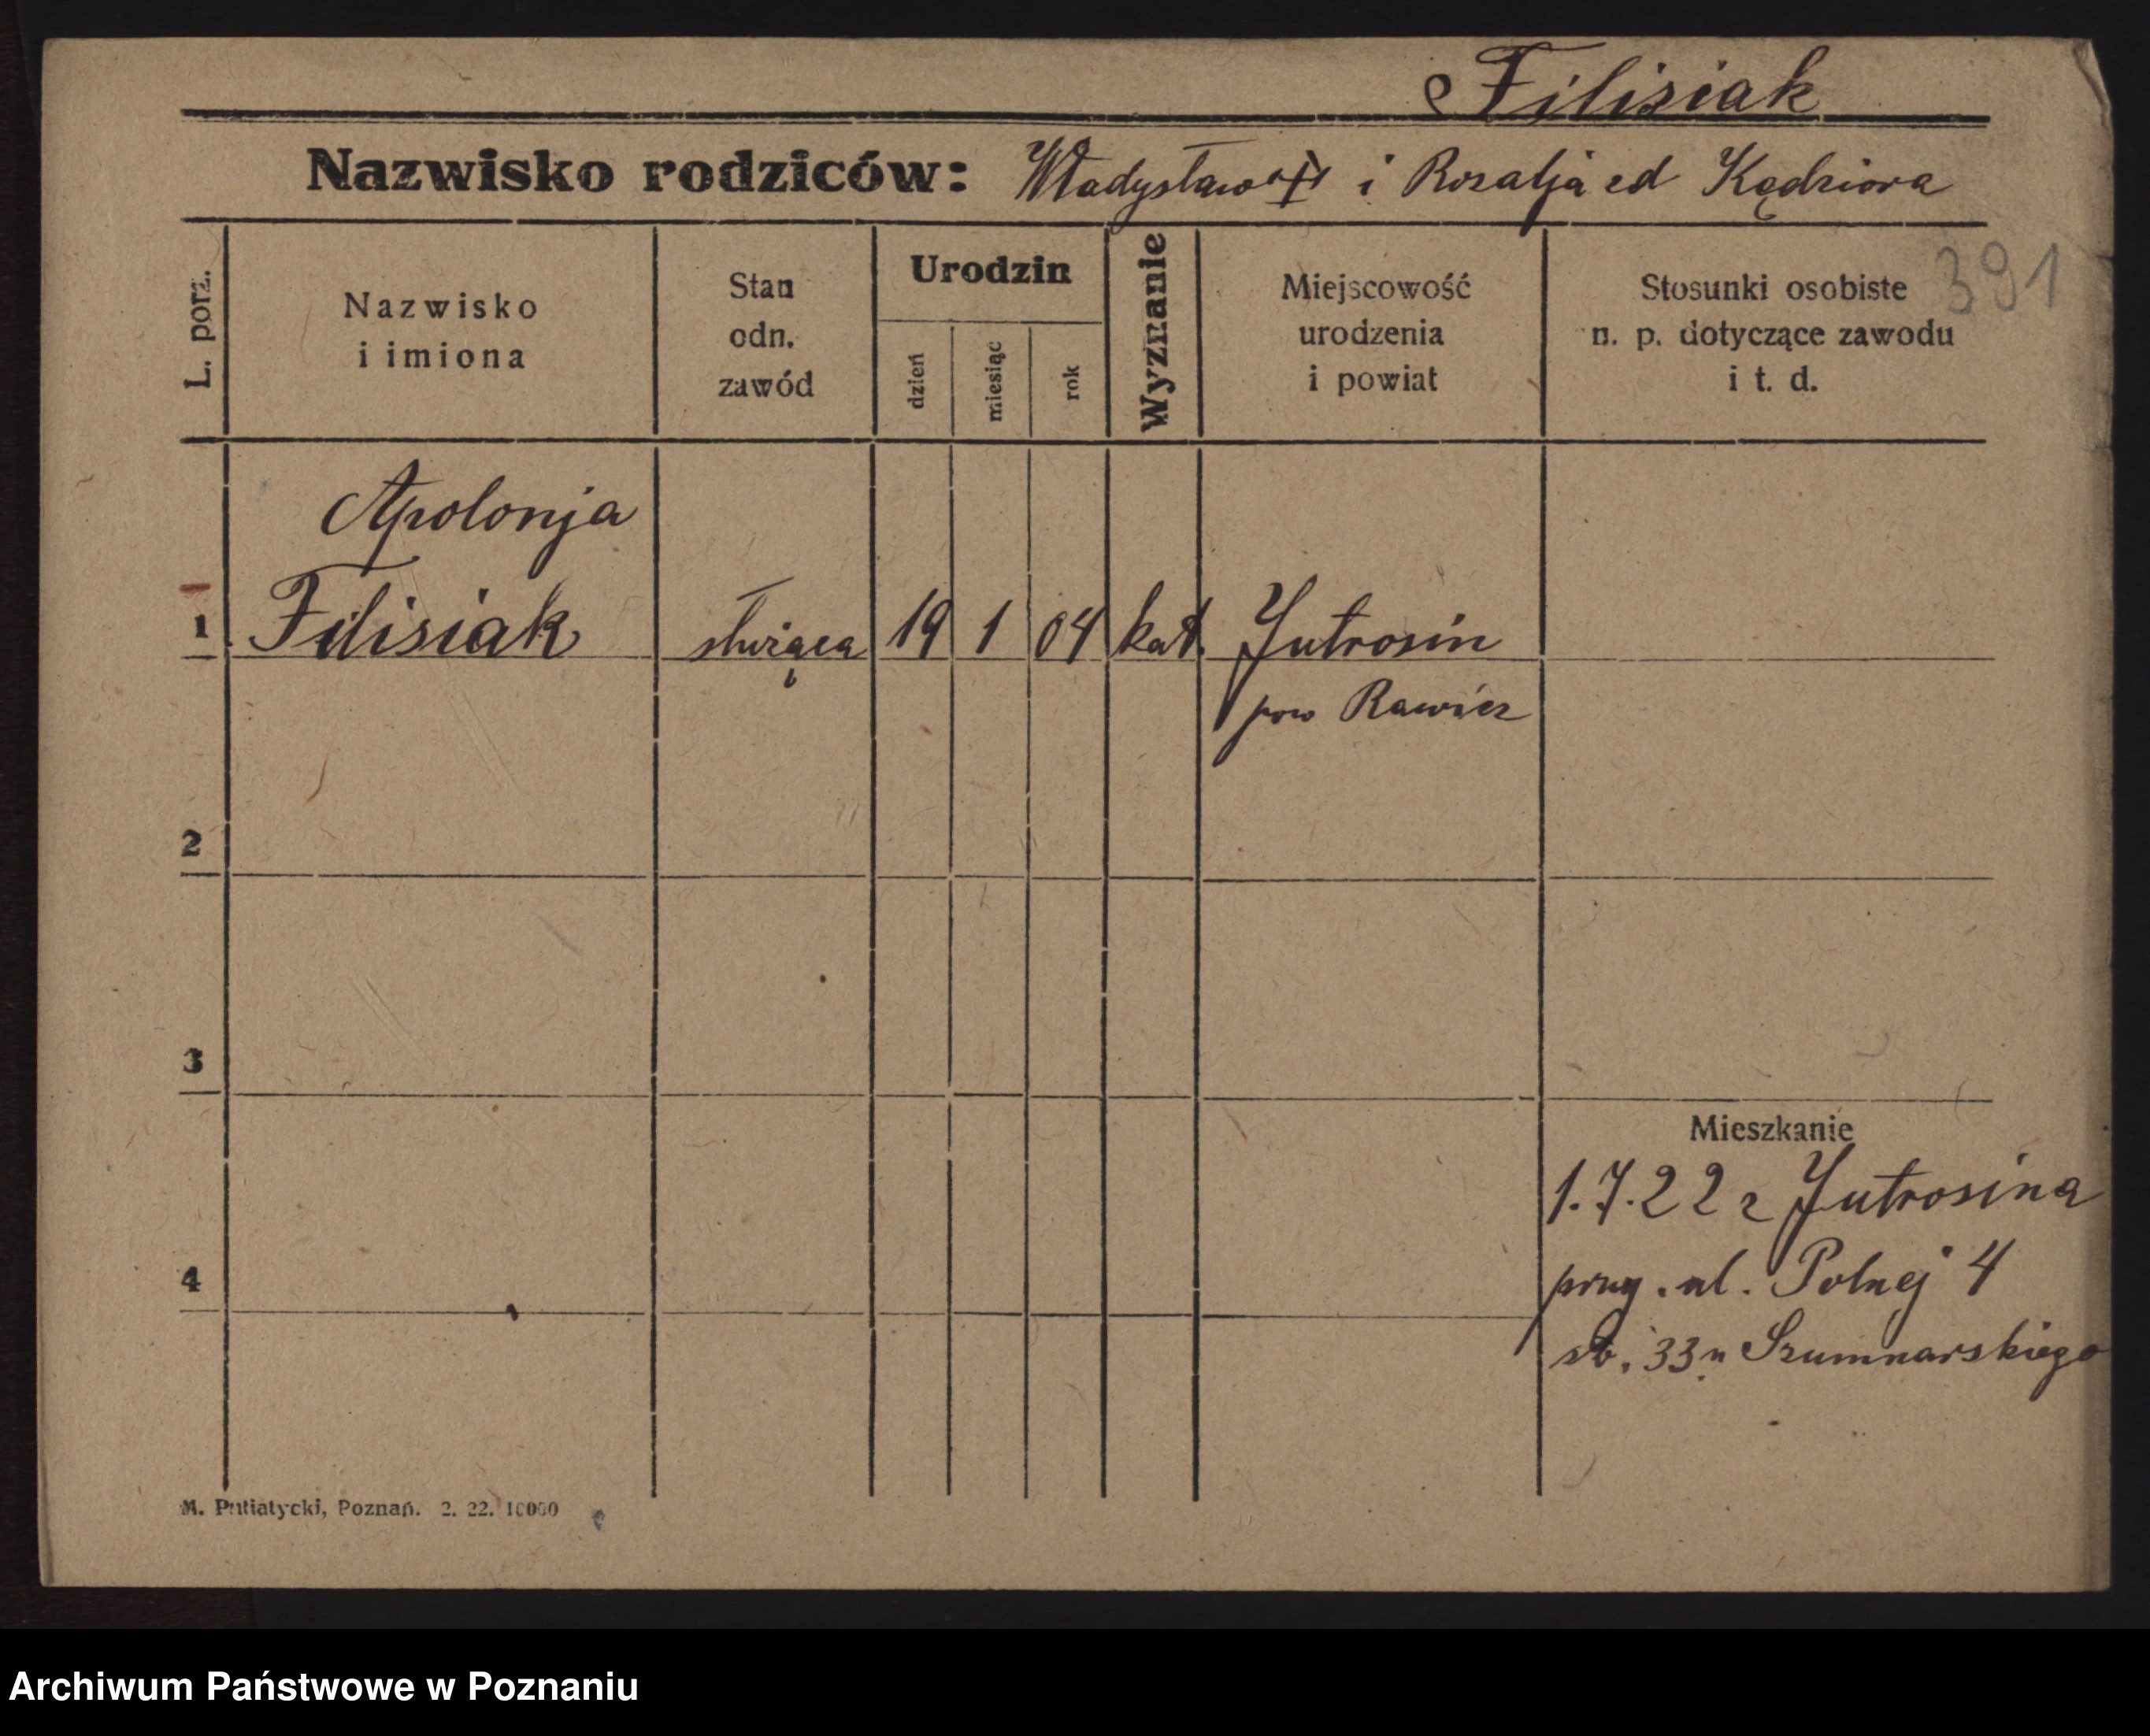 Filisiak
Nazwisko rodziców: Władysław † i Rozalja ed Kądziora
391
L. porz.
Nazwisko
i imiona
Stan
odn.
zawód
Urodzin
dzień
miesiąc
rok
Wyznanie
Miejscowość
urodzenia
i powiat
Stosunki osobiste
n. p. dotyczące zawodu
i t. d.
Apolonja
1 Filisiak służąca 19 1 04 kat. Jutrosin
pow Rawicz
2
3
Mieszkanie
1.7.22 z Jutrosina
ul. Polnej 4
4
33 u Szumnarskiego
M. Putiatycki, Poznań. 2. 22. 10000
Archiwum Państwowe w Poznaniu